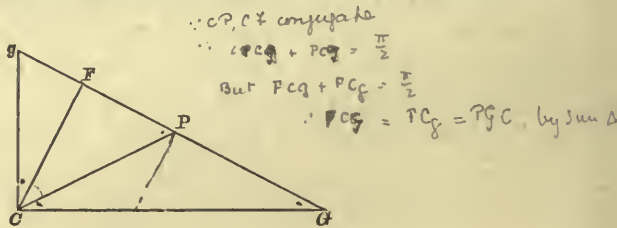 ∵ CP, CF conjugate
∴ PCG + PCg = π/2
But FCG + FCg = π/2
∴ PCG = FCg = PGC, by sim Δ
g
F
P
C
G